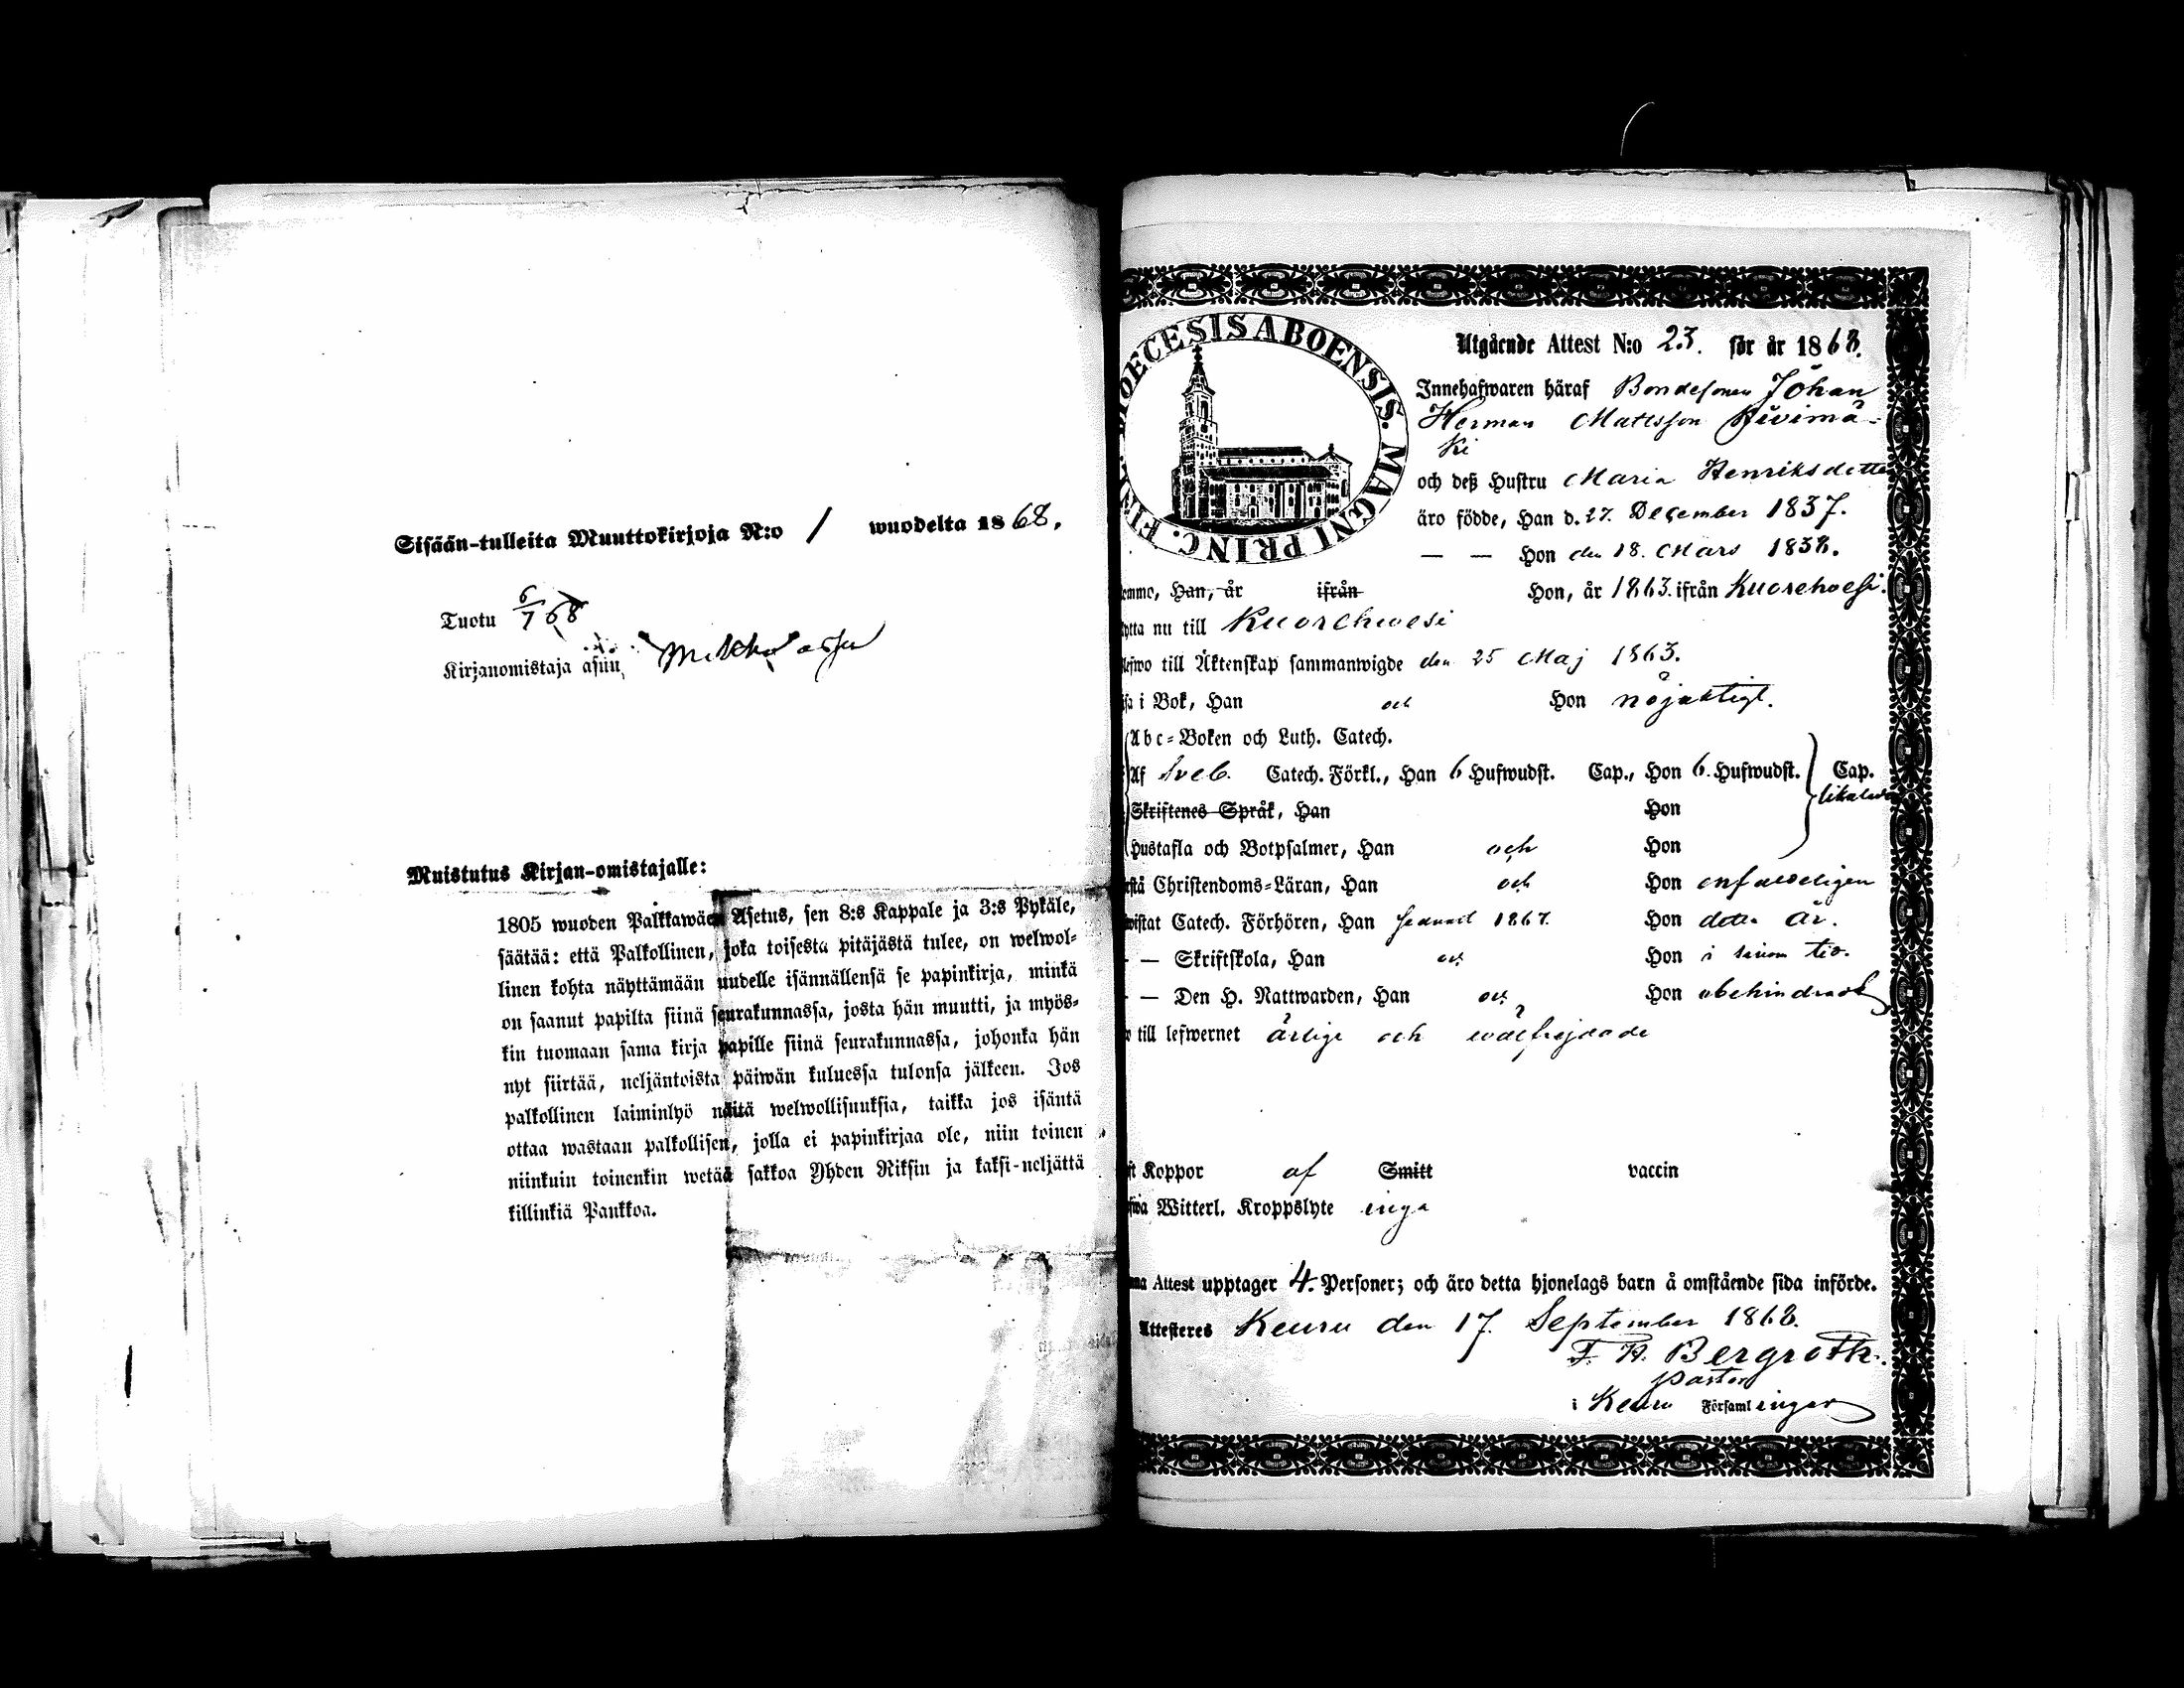 Sisään-tulleita Muuttokirjoja N:o / wuodelta 1868.
Tuotu 6/7 68
Kirjanomistaja asuu
Muistutus Kirjan-omistajalle:
1805 wuoden Palkkawäen Asetus, sen 8:s Kappale ja 3:s Pykäle,
säätää: että Palkollinen, joka toisesta pitäjästä tulee, on welwol-
linen kohta näyttämään uudelle isännällensä se papinkirja, minkä
on saanut papilta siinä seurakunnassa, josta hän muutti, ja myös-
kin tuomaan sama kirja papille siinä seurakunnassa, johonka hän
nyt siirtää, neljäntoista päiwän kuluessa tulonsa jälkeen. Jos
palkollinen laiminlyö näitä welwollisuuksia, taikka jos isäntä
ottaa wastaan palkollisen, jolla ei papinkirjaa ole, niin toinen
niinkuin toinenkin wetää sakkoa Yhden Riksin ja kaksi-neljättä
killinkiä Pankkoa.
DIOECESIS ABOENSIS. MAGNI PRINC. FINL.
Utgående Attest N:o 23. för år 1868.
Innehafwaren häraf Bondesonen Johan
Herman Mattsson Kivimä-
ki
och deß Hustru Maria Henriksdotter
äro födde, Han d. 27. December 1837.
— — Hon den 18. Mars 1838.
omme, Han, år ifrån Hon, år 1863. ifrån Kuorehvesi.
ytta nu till Kuorehvesi
lefwo till Äktenskap sammanwigde den 25 Maj 1863.
sa i Bok, Han och Hon nöjaktigt.
Abc-Boken och Luth. Catech.
Af Sveb. Catech. Förkl., Han 6 Hufwudst. Cap., Hon 6. Hufwudst. Cap.
likaledes
Skriftenes Språk, Han Hon
Hustafla och Botpsalmer, Han och Hon
rstå Christendoms-Läran, Han och Hon enfaldeligen
wistat Catech. Förhören, Han 1867. Hon detta år.
— Skriftskola, Han och Hon i sinom tid.
— Den H. Nattwarden, Han och Hon obehindrad
o till lefwernet ärliga och wälfrejdade
ft Koppor af Smitt vaccin
fwa Witterl. Kroppslyte inga
nna Attest upptager 4. Personer; och äro detta hjonelags barn å omstående sida införde.
Attesteres Keuru den 17. September 1868.
F. H. Bergroth.
pastor
i Keuru Församlingar